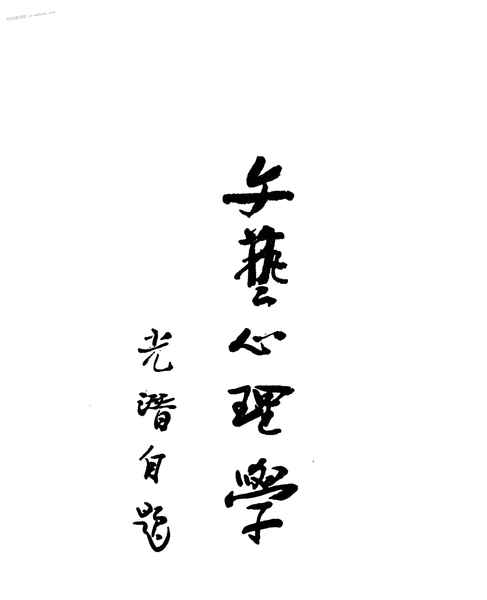 文藝心理學
光潛自題